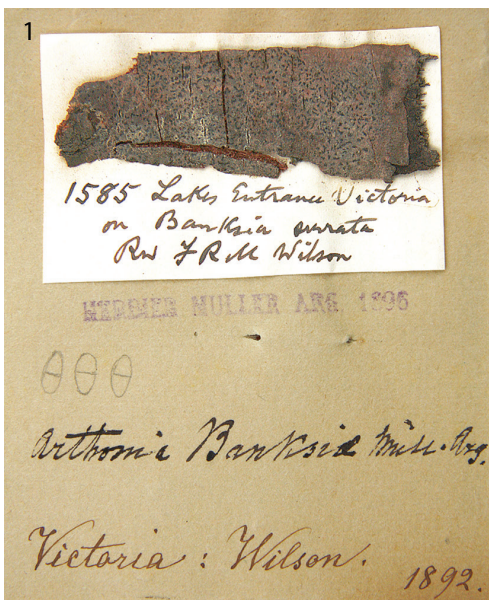 1
1585 Lakes Entrance Victoria
on Banksia serrata
Rev F R M Wilson
HERBIER MULLER ARG. 1896
Arthonia Banksiæ Müll. Arg.
Victoria : Wilson.
1892.